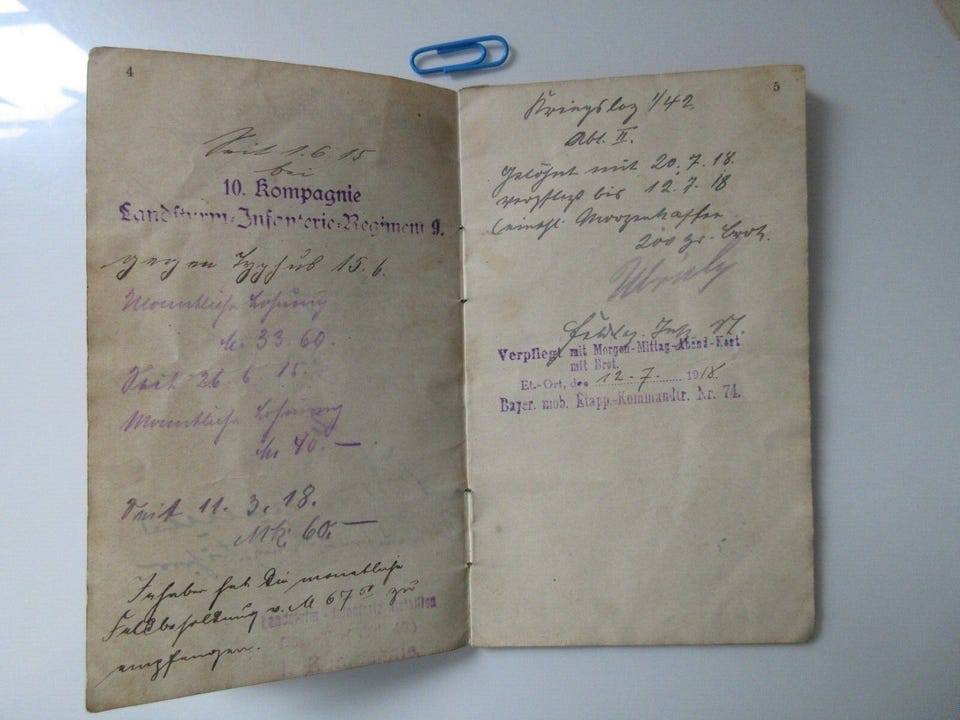 4
Seit 1.6 15
bei
10. Kompagnie
Landsturm-Infanterie-Regiment 9.
gegen Typhus 15.6.
Monatliche Löhnung
M. 33.60.
Seit 26.6 15.
Monatliche Löhnung
M. 40.—
Seit 11. 3. 18.
Mk. 60.—
Inhaber hat die monatliche
Feldbesoldung v. M 67 50 zu
empfangen.
5
Kriegslaz 1/42
Abt. II.
Gelöhnt mit 20.7.18.
verpflegt bis 12.7.18
(einschl. Morgenkaffee
200 gr. Brot.
Feldlaz. Insp. St.
Verpflegt mit Morgen-Mittag-Abend-Kost
mit Brot.
Et.-Ort, den 12.7. 1918.
Bayer. mob. Etapp.-Kommandtr. Nr. 74.